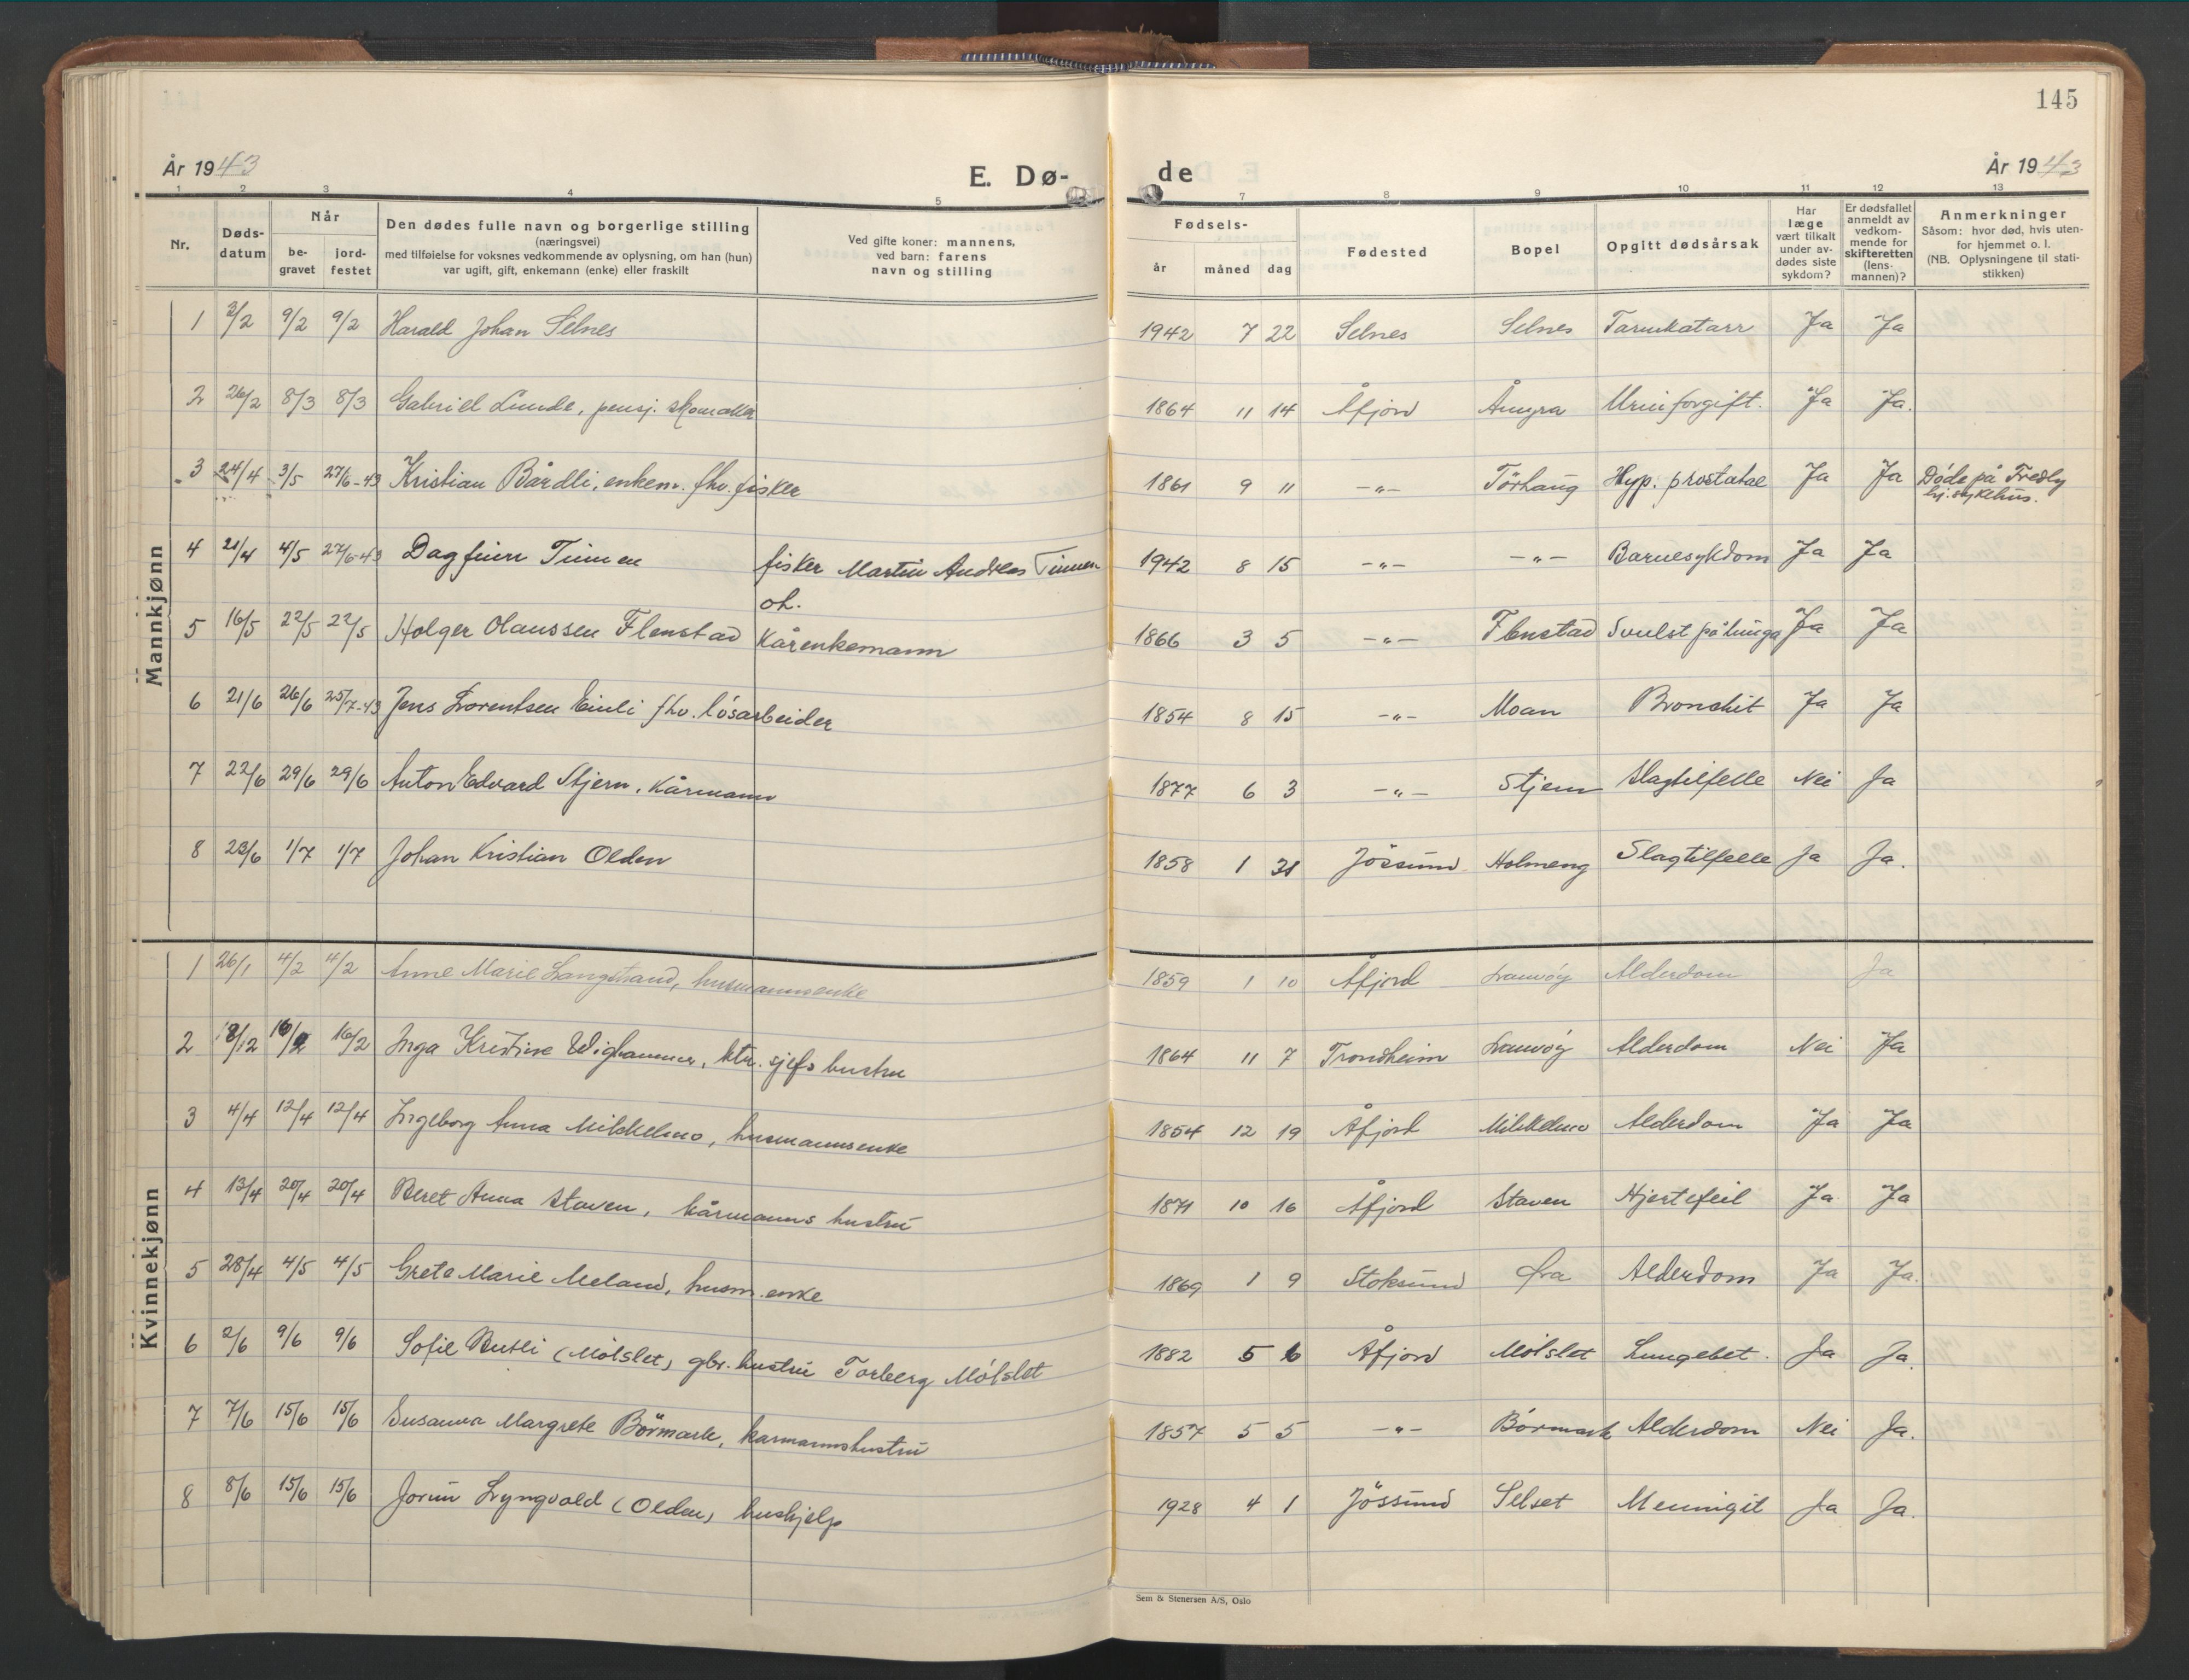 145
År 1943
E. Dø-
de
År 1943
1 2 3 4 5 7 8 9 10 11 12 13
Nr.
Døds-
datum
Når
be-
gravet
jord-
festet
Den dødes fulle navn og borgerlige stilling
(næringsvei)
med tilføielse for voksnes vedkommende av oplysning, om han (hun)
var ugift, gift, enkemann (enke) eller fraskilt
Ved gifte koner: mannens,
ved barn: farens
navn og stilling
Fødsels-
år måned dag
Fødested
Bopel
Opgitt dødsårsak
Har
læge
vært tilkalt
under av-
dødes siste
sykdom?
Er dødsfallet
anmeldt av
vedkom-
mende for
skifteretten
(lens-
mannen)?
Anmerkninger
Såsom: hvor død, hvis uten-
for hjemmet o. l.
(NB. Oplysningene til stati-
stikken)
Mannkjønn
1 3/2 9/2 9/2 Harald Johan Selnes 1942 7 22 Selnes Selnes Tarmkatarr Ja Ja
2 26/2 8/3 8/3 Gabriel Lunde, pensj. skomaker 1864 11 14 Åfjord Årnyra Urinforgift. Ja Ja.
3 24/4 3/5 27/6-43 Kristian Bårdli, enkem. fhv. fisker 1861 9 11 -"- Tårhaug Hyp. prostatae Ja Ja Døde på Fredly
hj. sykehus.
4 21/4 4/5 27/6-43 Dagfinn Tinnen fisker Martin Andreas Tinnen 1942 8 15 -"- -"- Barnesykdom Ja Ja
oh.
5 16/5 22/5 22/5 Holger Olaussen Flenstad Kårenkemann 1866 3 5 -"- Flenstad Svulst på lunga Ja Ja
6 21/6 26/6 25/7-43 Jens Lorentsen Einli fhv. løsarbeider 1854 8 15 -"- Moan Bronchit Ja Ja
7 22/6 29/6 29/6 Anton Edvard Stjern, Kårmann 1877 6 3 -"- Stjern Slagtilfelle Nei Ja
8 23/6 1/7 1/7 Johan Kristian Olden 1858 1 31 Jøssund Holmeng Slagtilfelle Ja Ja.
Kvinnekjønn
1 26/1 4/2 4/2 Anne Marie Langstrand, husmannsenke 1859 1 10 Åfjord Lauvøy Alderdom Ja
2 8/2 16/2 16/2 Inga Kristine Wighammer, ktr. sjefs hustru 1864 11 7 Trondheim Lauvøy Alderdom Nei Ja
3 4/4 12/4 12/4 Ingeborg Anna Mikkelmo, husmannsenke 1854 12 19 Åfjord Mikkelmo Alderdom Ja Ja
4 13/4 20/4 20/4 Beret Anna Staven, kårmanns hustru 1871 10 16 Åfjord Staven Hjertefeil Ja Ja
5 28/4 4/5 4/5 Grete Marie Meland, husm. enke 1869 1 9 Stoksund Øra Alderdom Ja Ja.
6 2/6 9/6 9/6 Sofie Butli (Mølslet) gbr. hustru Torberg Mølslet 1882 5 6 Åfjord Mølslet Lungebet. Ja Ja.
7 7/6 15/6 15/6 Susanna Margrete Börmark, karmannshustru 1857 5 5 -"- Börmark Alderdom Nei Ja.
8 8/6 15/6 15/6 Jorun Lyngvold (Olden) hushjelp 1928 4 1 Jøssund Selset Meningit Ja Ja.
Sem & Stenersen A/S, Oslo